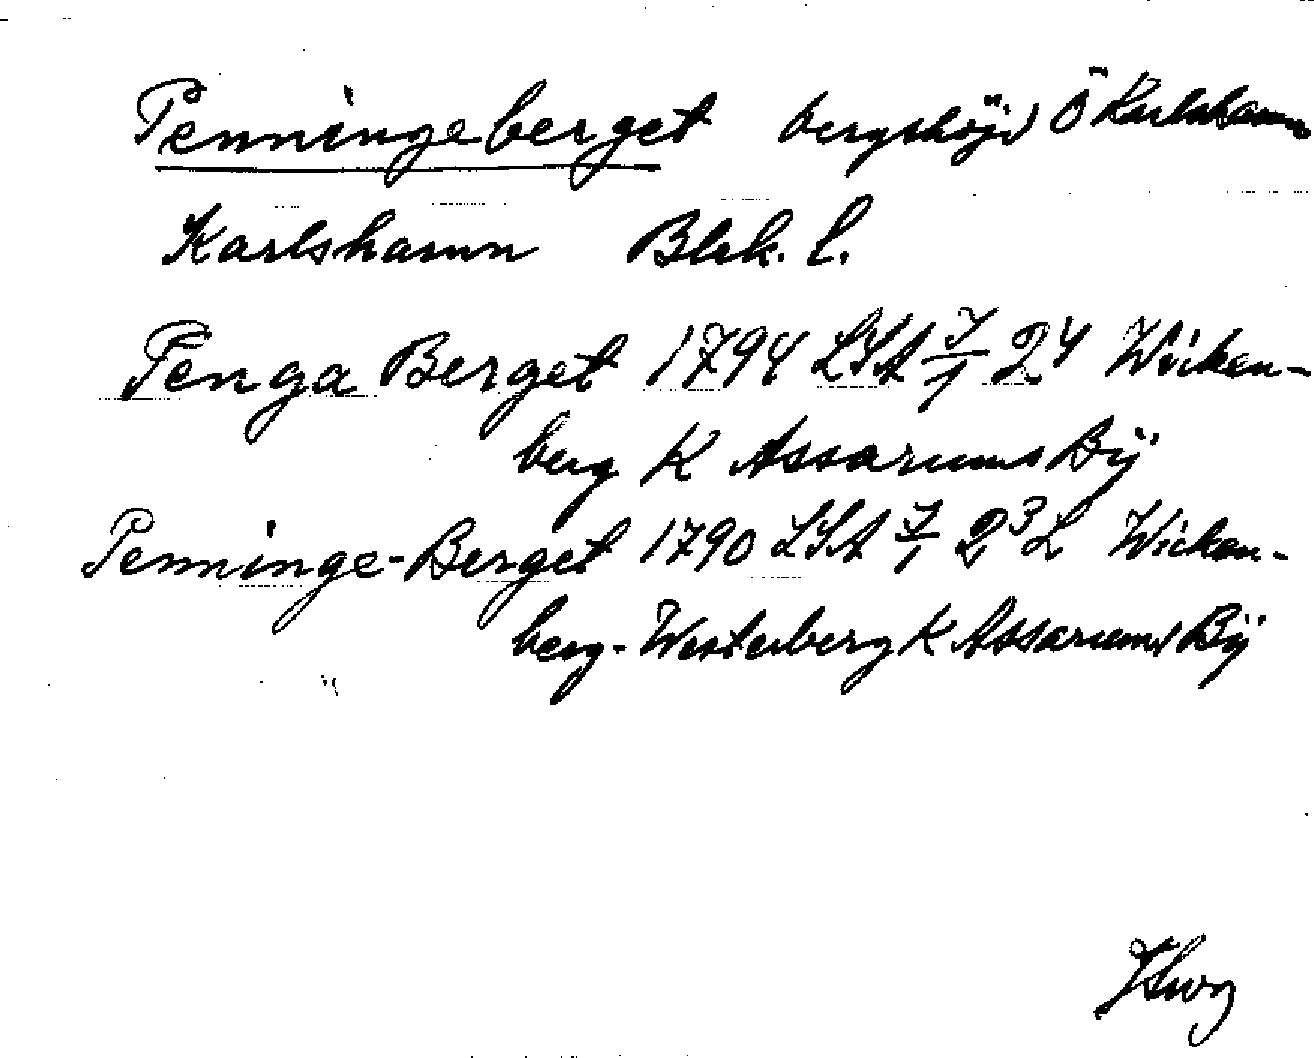 Penningeberget bergshöjd Ö Karlshamn
Karlshamn Blek. l.
Penga Berget 1794 LSA 7/1 2⁴ Wicken-
berg K Assarums Bÿ
Penninge-Berget 1790 LSA 7/1 2³ L Wicken-
berg-Westerberg K Assarums Bÿ